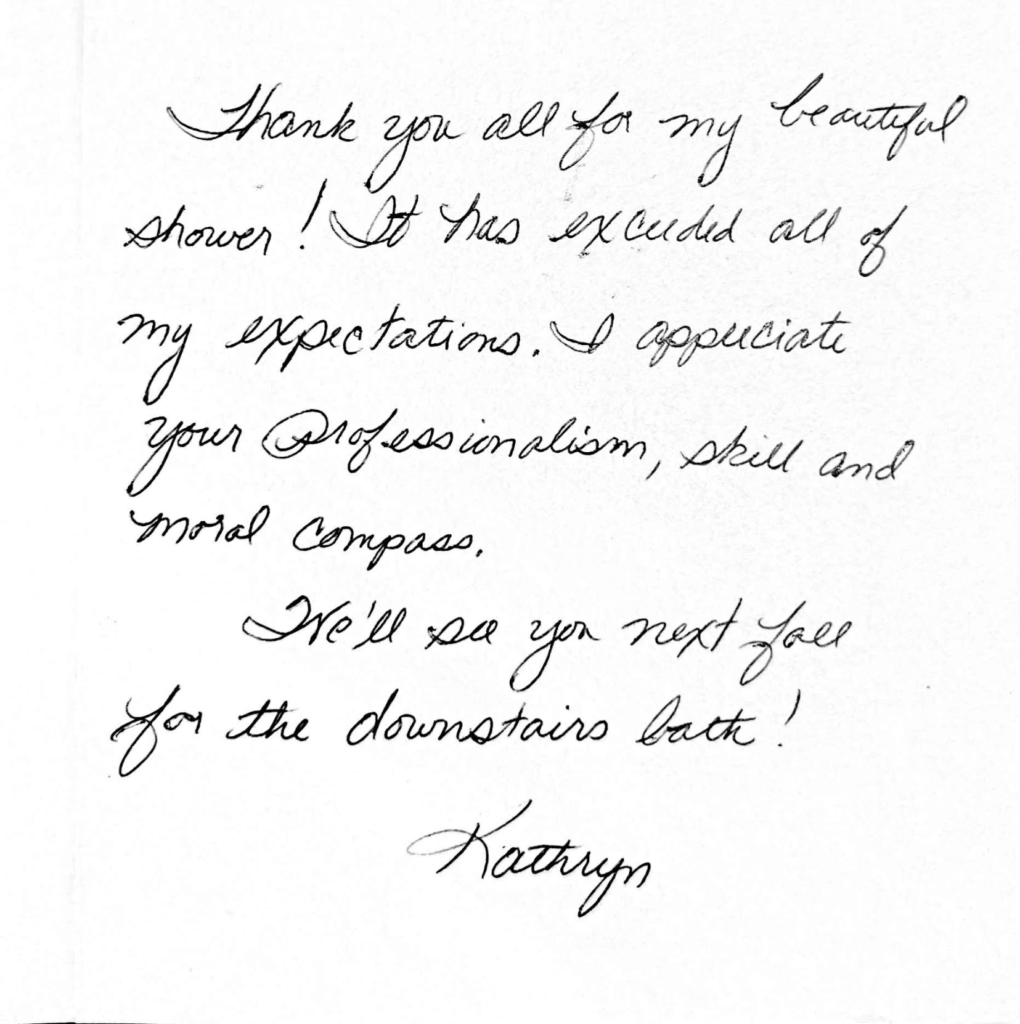 Thank you all for my beautiful
shower! It has exceeded all of
my expectations. I appreciate
your professionalism, skill and
moral compass.
We'll see you next fall
for the downstairs bath!
Kathryn